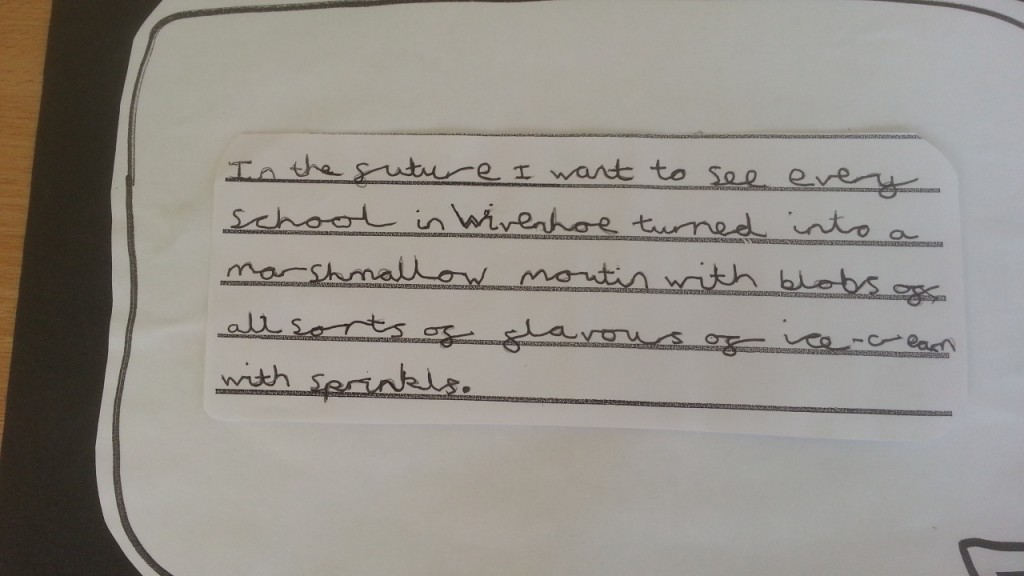 In the future I want to see every
school in Wivenhoe turned into a
marshmallow moutin with blobs of
all sorts of flavous of ice-cream
with sprinkls.